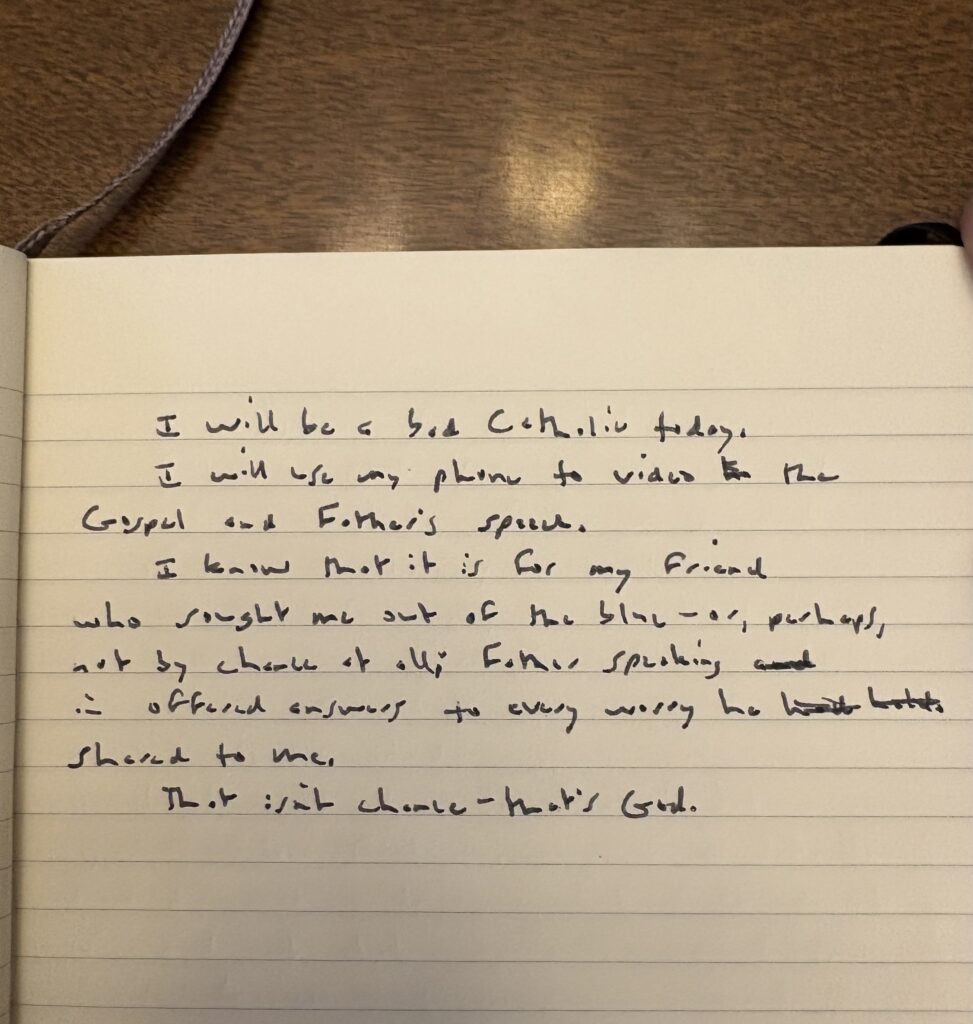 I will be a bad Catholic today.
I will use my phone to video the
Gospel and Father's speech.
I know that it is for my friend
who sought me out of the blue – or, perhaps,
not by chance at all; Father speaking
offered answers to every worry he
shared to me.
That isn't chance – that's God.